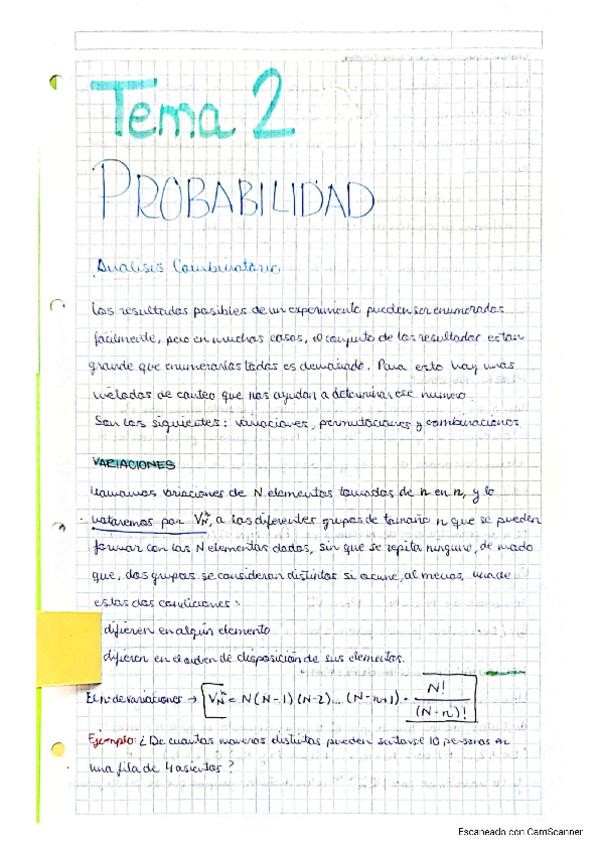 Tema 2
PROBABILIDAD
Analisis Combinatorio
Los resultados posibles de un experimento pueden ser enumerados
fácilmente, pero en muchos casos, el conjunto de los resultados es tan
grande que enumerarlos todos es demasiado. Para esto hay unos
metodos de conteo que nos ayudan a determinar ese numero.
Son los siguientes: variaciones, permutaciones y combinaciones
VARIACIONES
Llamamos variaciones de N elementos tomados de n en n, y lo
notaremos por V_N^n, a los diferentes grupos de tamaño n que se pueden
formar con los N elementos dados, sin que se repita ninguno, de modo
que, dos grupos se consideran distintos si ocurre, al menos, una de
estas dos condiciones:
difieren en algún elemento
difieren en el orden de disposición de sus elementos.
El nº de variaciones → V_N^n = N(N-1)(N-2)... (N-n+1) = N! / (N-n)!
Ejemplo: ¿De cuantas maneras distintas pueden sentarse 10 personas en
una fila de 4 asientos?
Escaneado con CamScanner